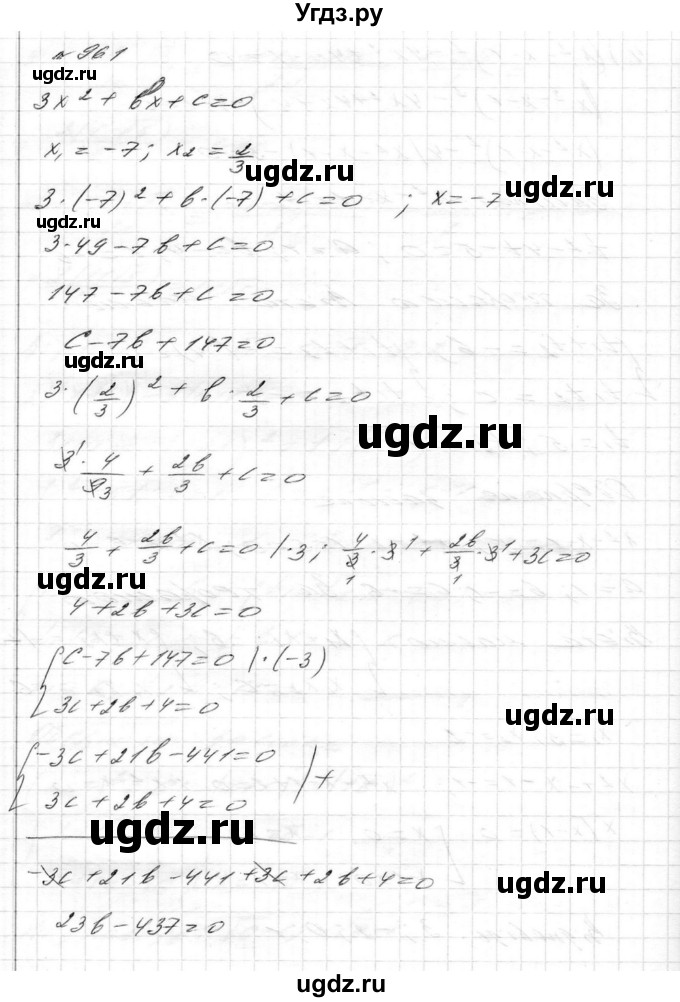 Угдз.ру
№ 961
ugdz.ru
3x² + bx + c = 0
x₁ = -7; x₂ = 2/3
ugdz.ru
ugdz.ru
3·(-7)² + b·(-7) + c = 0 ; x = -7
3·49 - 7b + c = 0
ugdz.ru
147 - 7b + c = 0
ugdz.ru
c - 7b + 147 = 0
3·(2/3)² + b·2/3 + c = 0
ugdz.ru
3¹·4/9₃ + 2b/3 + c = 0
ugdz.ru
4/3 + 2b/3 + c = 0 |·3; 4/3₁·3¹ + 2b/3₁·3¹ + 3c = 0
ugdz.ru
4 + 2b + 3c = 0
{ c - 7b + 147 = 0 |·(-3)
3c + 2b + 4 = 0
ugdz.ru
{ -3c + 21b - 441 = 0
3c + 2b + 4 = 0 | +
ugdz.ru
-3c + 21b - 441 + 3c + 2b + 4 = 0
ugdz.ru
23b - 437 = 0
ugdz.ru
ugdz.ru